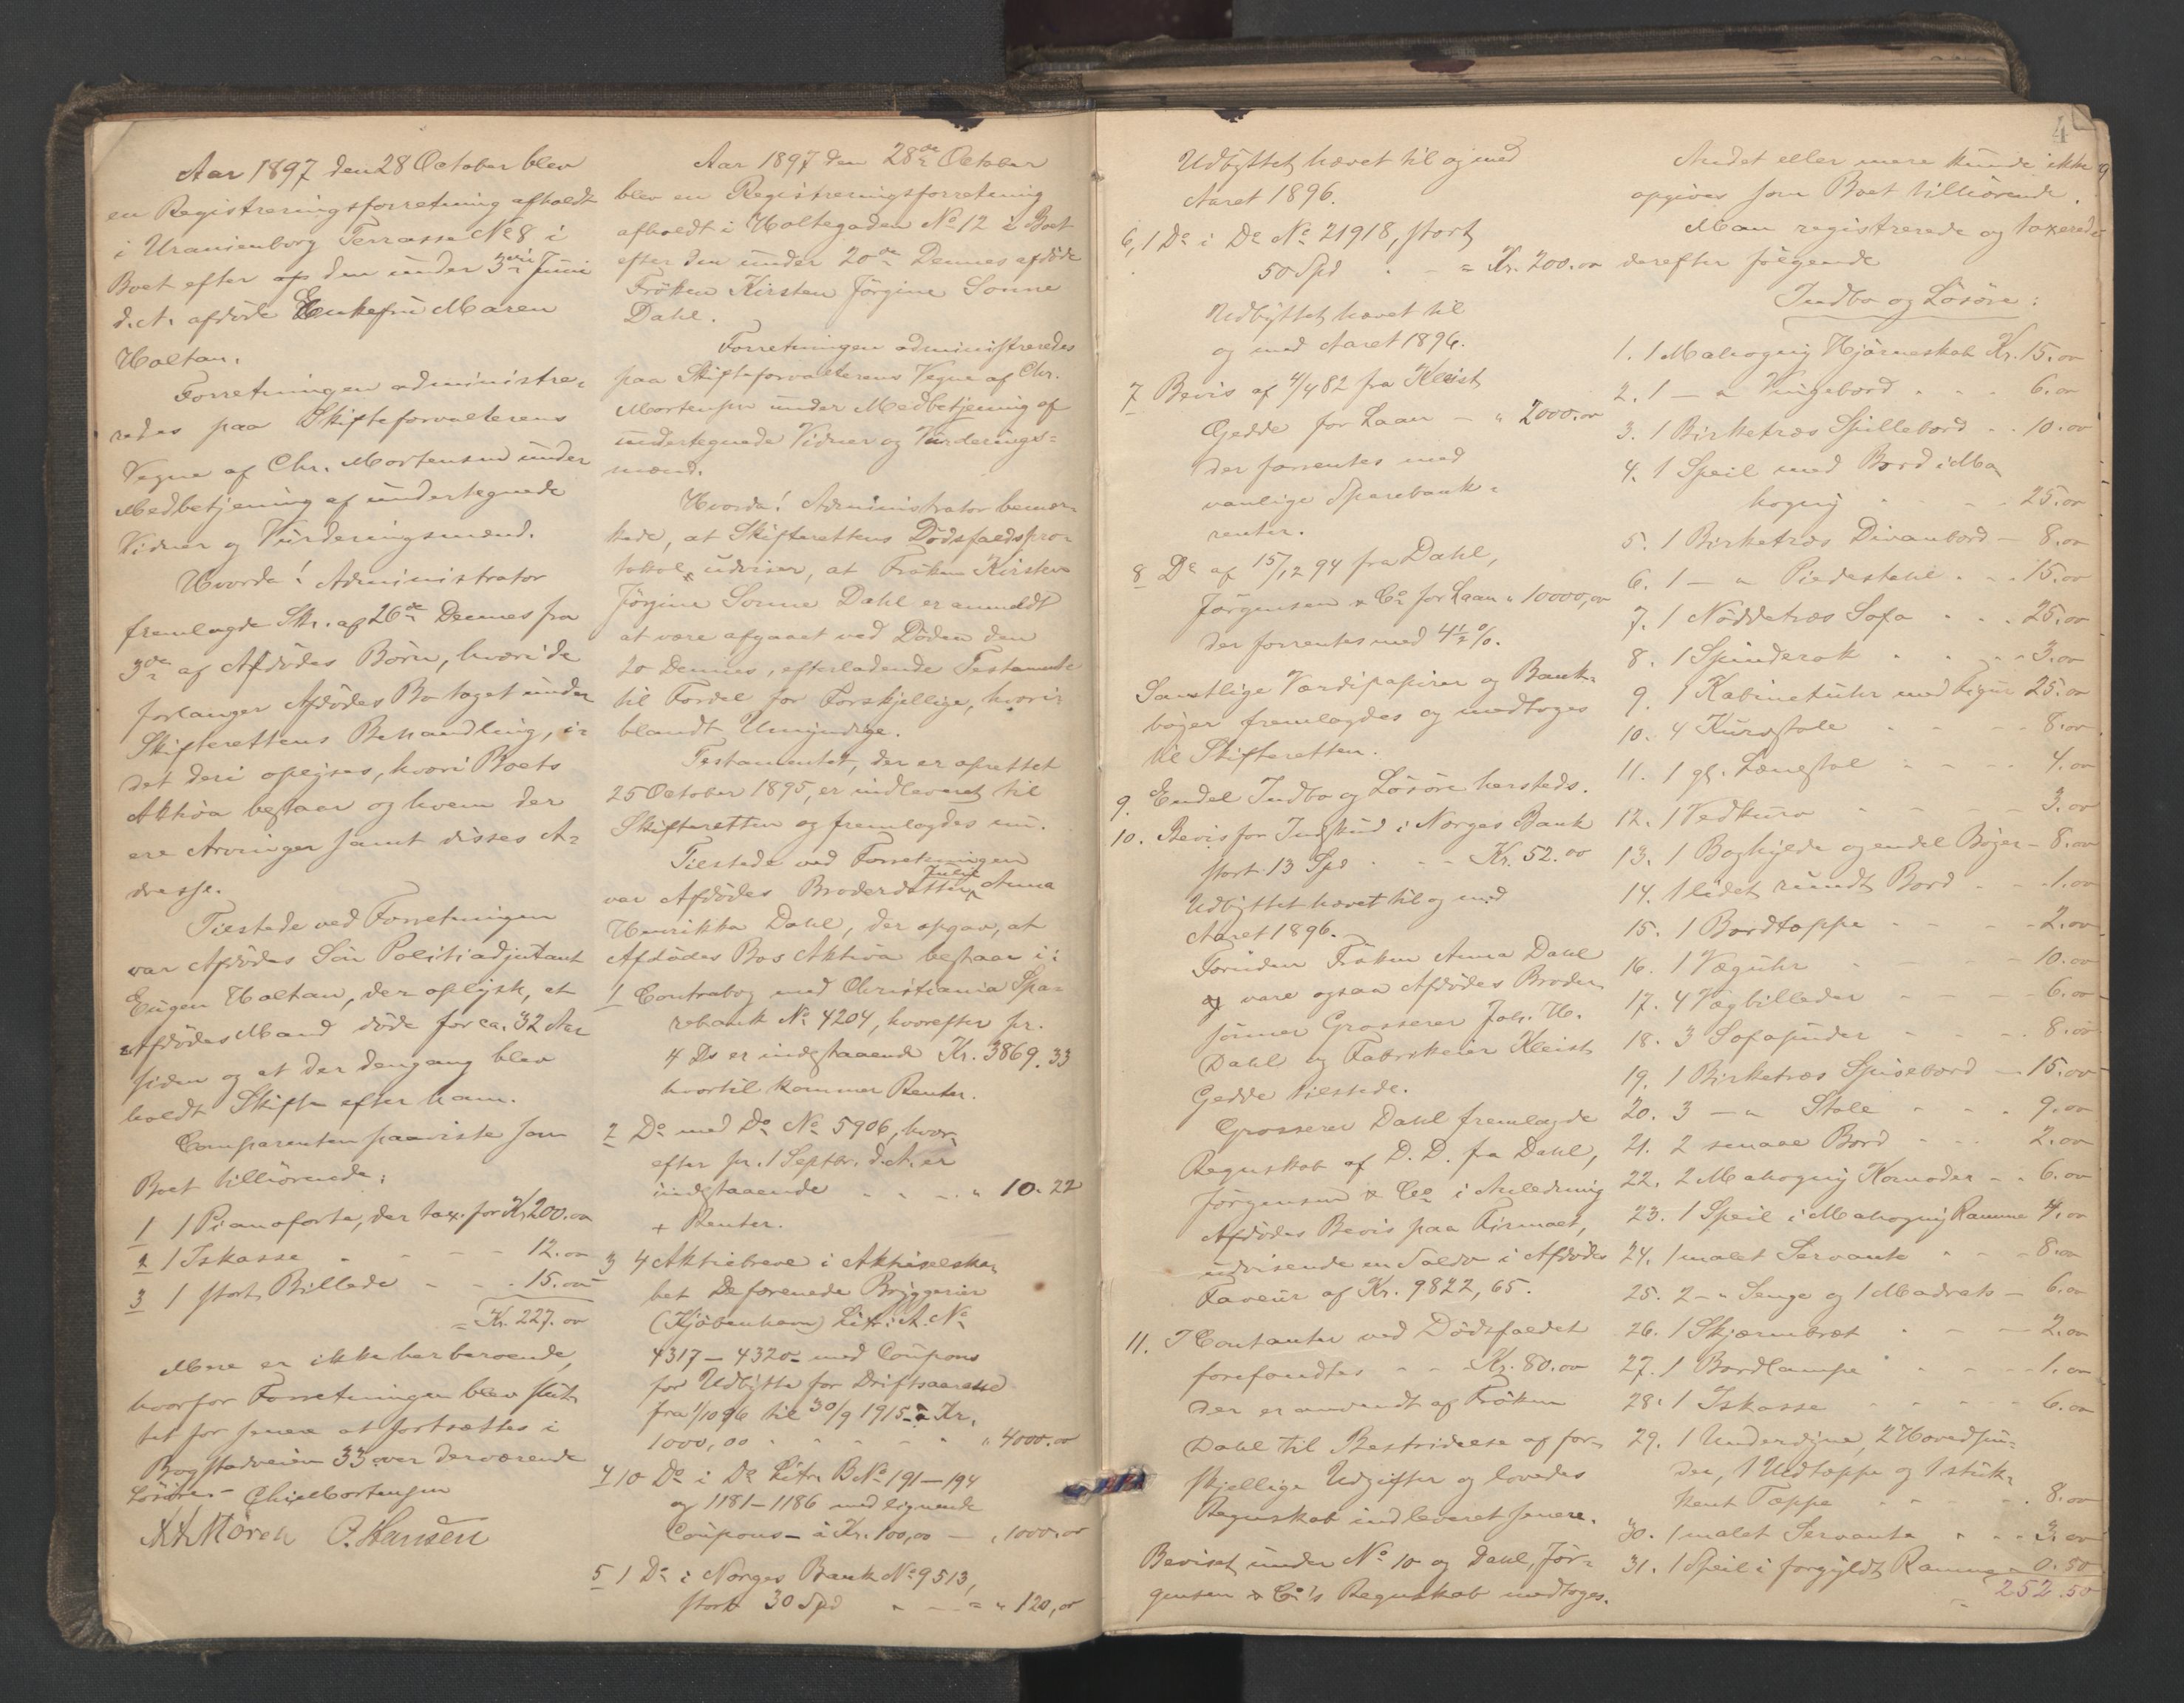 Aar 1897 den 28 October blev
en Registreringsforretning afholdt
i Uranienborg Terrasse No 8 i
Boet efter den under 3die Juni
d. A. afdøde Enkefru Maren
Holtan.
Forretningen administre-
redes paa Skifteforvalterens
Vegne af Chr. Mortensen under
Medbetjening af undertegnede
Vidner og Vurderingsmænd.
Hvorda! Administrator
fremlagde Skr. af 26de Dennes fra
3de af Afdødes Børn, hvori de
forlanger Afdødes Bo taget under
Skifterettens Behandling, i-
det deri oplyses, hvori Boets
Aktiva bestaar og hvem der
ere Arvinger samt disses A-
dresse.
Tilstede ved Forretningen
var Afdødes Søn Politiadjutant
Eugen Holtan, der oplyste, at
Afdødes Mand døde for ca. 32 Aar
siden og at der dengang blev
holdt Skifte efter ham.
Comparenten paaviste som
Boet tilhørende:
1 1 Pianoforte, der tax. for Kr 200.oo
2 1 Iskasse - - - 12.oo
3 1 stort Billede - - - 15.oo
= Kr. 227.oo
Mere er ikke her beroende,
hvorfor Forretningen blev slut-
tet for senere at fortsættes i
Bogstadveien 33 over derværende
Løsøre. - Chr. Mortensen
A. Mørch P. Hansen
Aar 1897 den 28de October
blev en Registreringsforretning
afholdt i Holtegaden No 12 i Boet
efter den under 20de Dennes afdøde
Frøken Kirsten Jørgine Sonne
Dahl.
Forretningen administreredes
paa Skifteforvalterens Vegne af Chr.
Mortensen under Medbetjening af
undertegnede Vidner og Vurderings-
mænd.
Hvorda! Administrator bemær-
kede, at Skifterettens Dødsfaldspro-
tokol udviser, at Frøken Kirsten
Jørgine Sonne Dahl er anmeldt
at være afgaaet ved Døden den
20 Dennes, efterladende Testamente
til Fordel for Forskjellige, hvori-
blandt Umyndige.
Testamentet, der er oprettet
25 October 1895, er indleveret til
Skifteretten og fremlagdes nu.
Tilstede ved Forretningen
var Afdødes Broderdatter Julie Anna
Henrikka Dahl, der opgav, at
Afdødes Bos Aktiva bestaar i:
1 Contrabog med Christiania Spa-
rebank No 4204, hvorefter pr.
4 Ds er indestaaende Kr. 3869.33
hvortil kommer Renter.
2 Do med Do No 5906, hvor-
efter pr. 1 Septbr. d. A. er
indestaaende - - - " 10.22
+ Renter.
3 4 Aktiebreve i Aktieselska-
bet De forenede Bryggerier
(Kjøbenhavn) Litr. A. No
4317 - 4320 - med Coupons
for Udbytte for Driftsaarene
fra 1/10 96 til 30/9 1915 - a Kr.
1000,00 - - - " 4000.oo
4 10 Do i Do Litr. B No 191 - 194
og 1181 - 1186 med lignende
Coupons - a Kr. 100,00 - " 1000.oo
5 1 Do i Norges Bank No 9513,
stort 30 Spd - - = " 120,oo
4
Udbyttet hævet til og med
Aaret 1896.
6, 1 Do i Do No 21918, stort
50 Spd - - = Kr. 200.oo
Udbyttet hævet til
og med Aaret 1896.
7 Bevis af 4/4 82 fra Kleist
Gedde for Laan - " 2000.oo
der forrentes med
vanlige Sparebank-
renter.
8 Do af 15/12 94 fra Dahl,
Jørgensen & Co for Laan " 10000,oo
der forrentes med 4 1/2 %.
Samtlige Værdipapirer og Bank-
bøger fremlagdes og medtoges
til Skifteretten.
9. Endel Indbo og Løsøre hersteds.
10. Bevis for Indskud i Norges Bank
stort 13 Spd - - Kr. 52.oo
Udbyttet hævet til og med
Aaret 1896.
Foruden Frøken Anna Dahl
og vare ogsaa Afdødes Broder-
sønner Grosserer Joh. H.
Dahl og Fabrikeier Kleist
Gedde tilstede.
Grosserer Dahl fremlagde
Regnskab af D. D. fra Dahl,
Jørgensen & Co i Anledning
Afdødes Bevis paa Firmaet,
udvisende en Saldo i Afdødes
Faveur af Kr. 9822,65.
11. I Contanter ved Dødsfaldet
forefandtes - - Kr. 80.oo
der er anvendt af Frøken
Dahl til Bestridelse af for-
skjellige Udgifter og lovedes
Regnskab indleveret senere.
Beviset under No 10 og Dahl, Jør-
gensen & Co's Regnskab medtoges.
Andet eller mere kunde ikke
opgives som Boet tilhørende.
Man registrerede og taxerede
derefter følgende
Indbo og Løsøre:
1. 1 Mahogny Hjørneskab Kr. 15.oo
2. 1 - " Vingebord - - 6.oo
3. 1 Birketræs Spillebord - - 10.oo
4. 1 Speil med Bord i Ma
hogny - - - 25.oo
5. 1 Birketræs Divanbord - 8.oo
6. 1 - " Piedestahl - - 15.oo
7. 1 Nøddetræs Sofa - - - 25.oo
8. 1 Spinderok - - - 3.oo
9. 1 Kabinetuhr med Figur 25.oo
10. 4 Kurvstole - - - 8.oo
11. 1 gl. Lænestol - - - 4.oo
12. 1 Vedkurv - - - 3.oo
13. 1 Boghylde og endel Bøger - 8.oo
14. 1 lidet rundt Bord - - - 1.oo
15. 1 Bordtæppe - - - 2.oo
16. 1 Væguhr - - - 10.oo
17. 4 Vægbilleder - - - 6.oo
18. 3 Sofapuder - - 8.oo
19. 1 Birketræs Spisebord - 15.oo
20. 3 - " Stole - - - 9.oo
21. 2 smaae Bord - - - 2.oo
22. 2 Mahogny Komoder - - 6.oo
23. 1 Speil i Mahogny Ramme 4.oo
24. 1 malet Servante - - - 8.oo
25. 2 - " Senge og 1 Madrats - 6.oo
26. 1 Skjærmbræt - - - 2.oo
27. 1 Bordlampe - - - 1.oo
28. 1 Iskasse - - - 6.oo
29. 1 Underdyne, 2 Hovedpu-
der, 1 Uldtæppe og 1 stuk-
kent Tæppe - - - 8.oo
30. 1 malet Servante - - - 3.oo
31. 1 Speil i forgyldt Ramme - 0.50
= 252.50